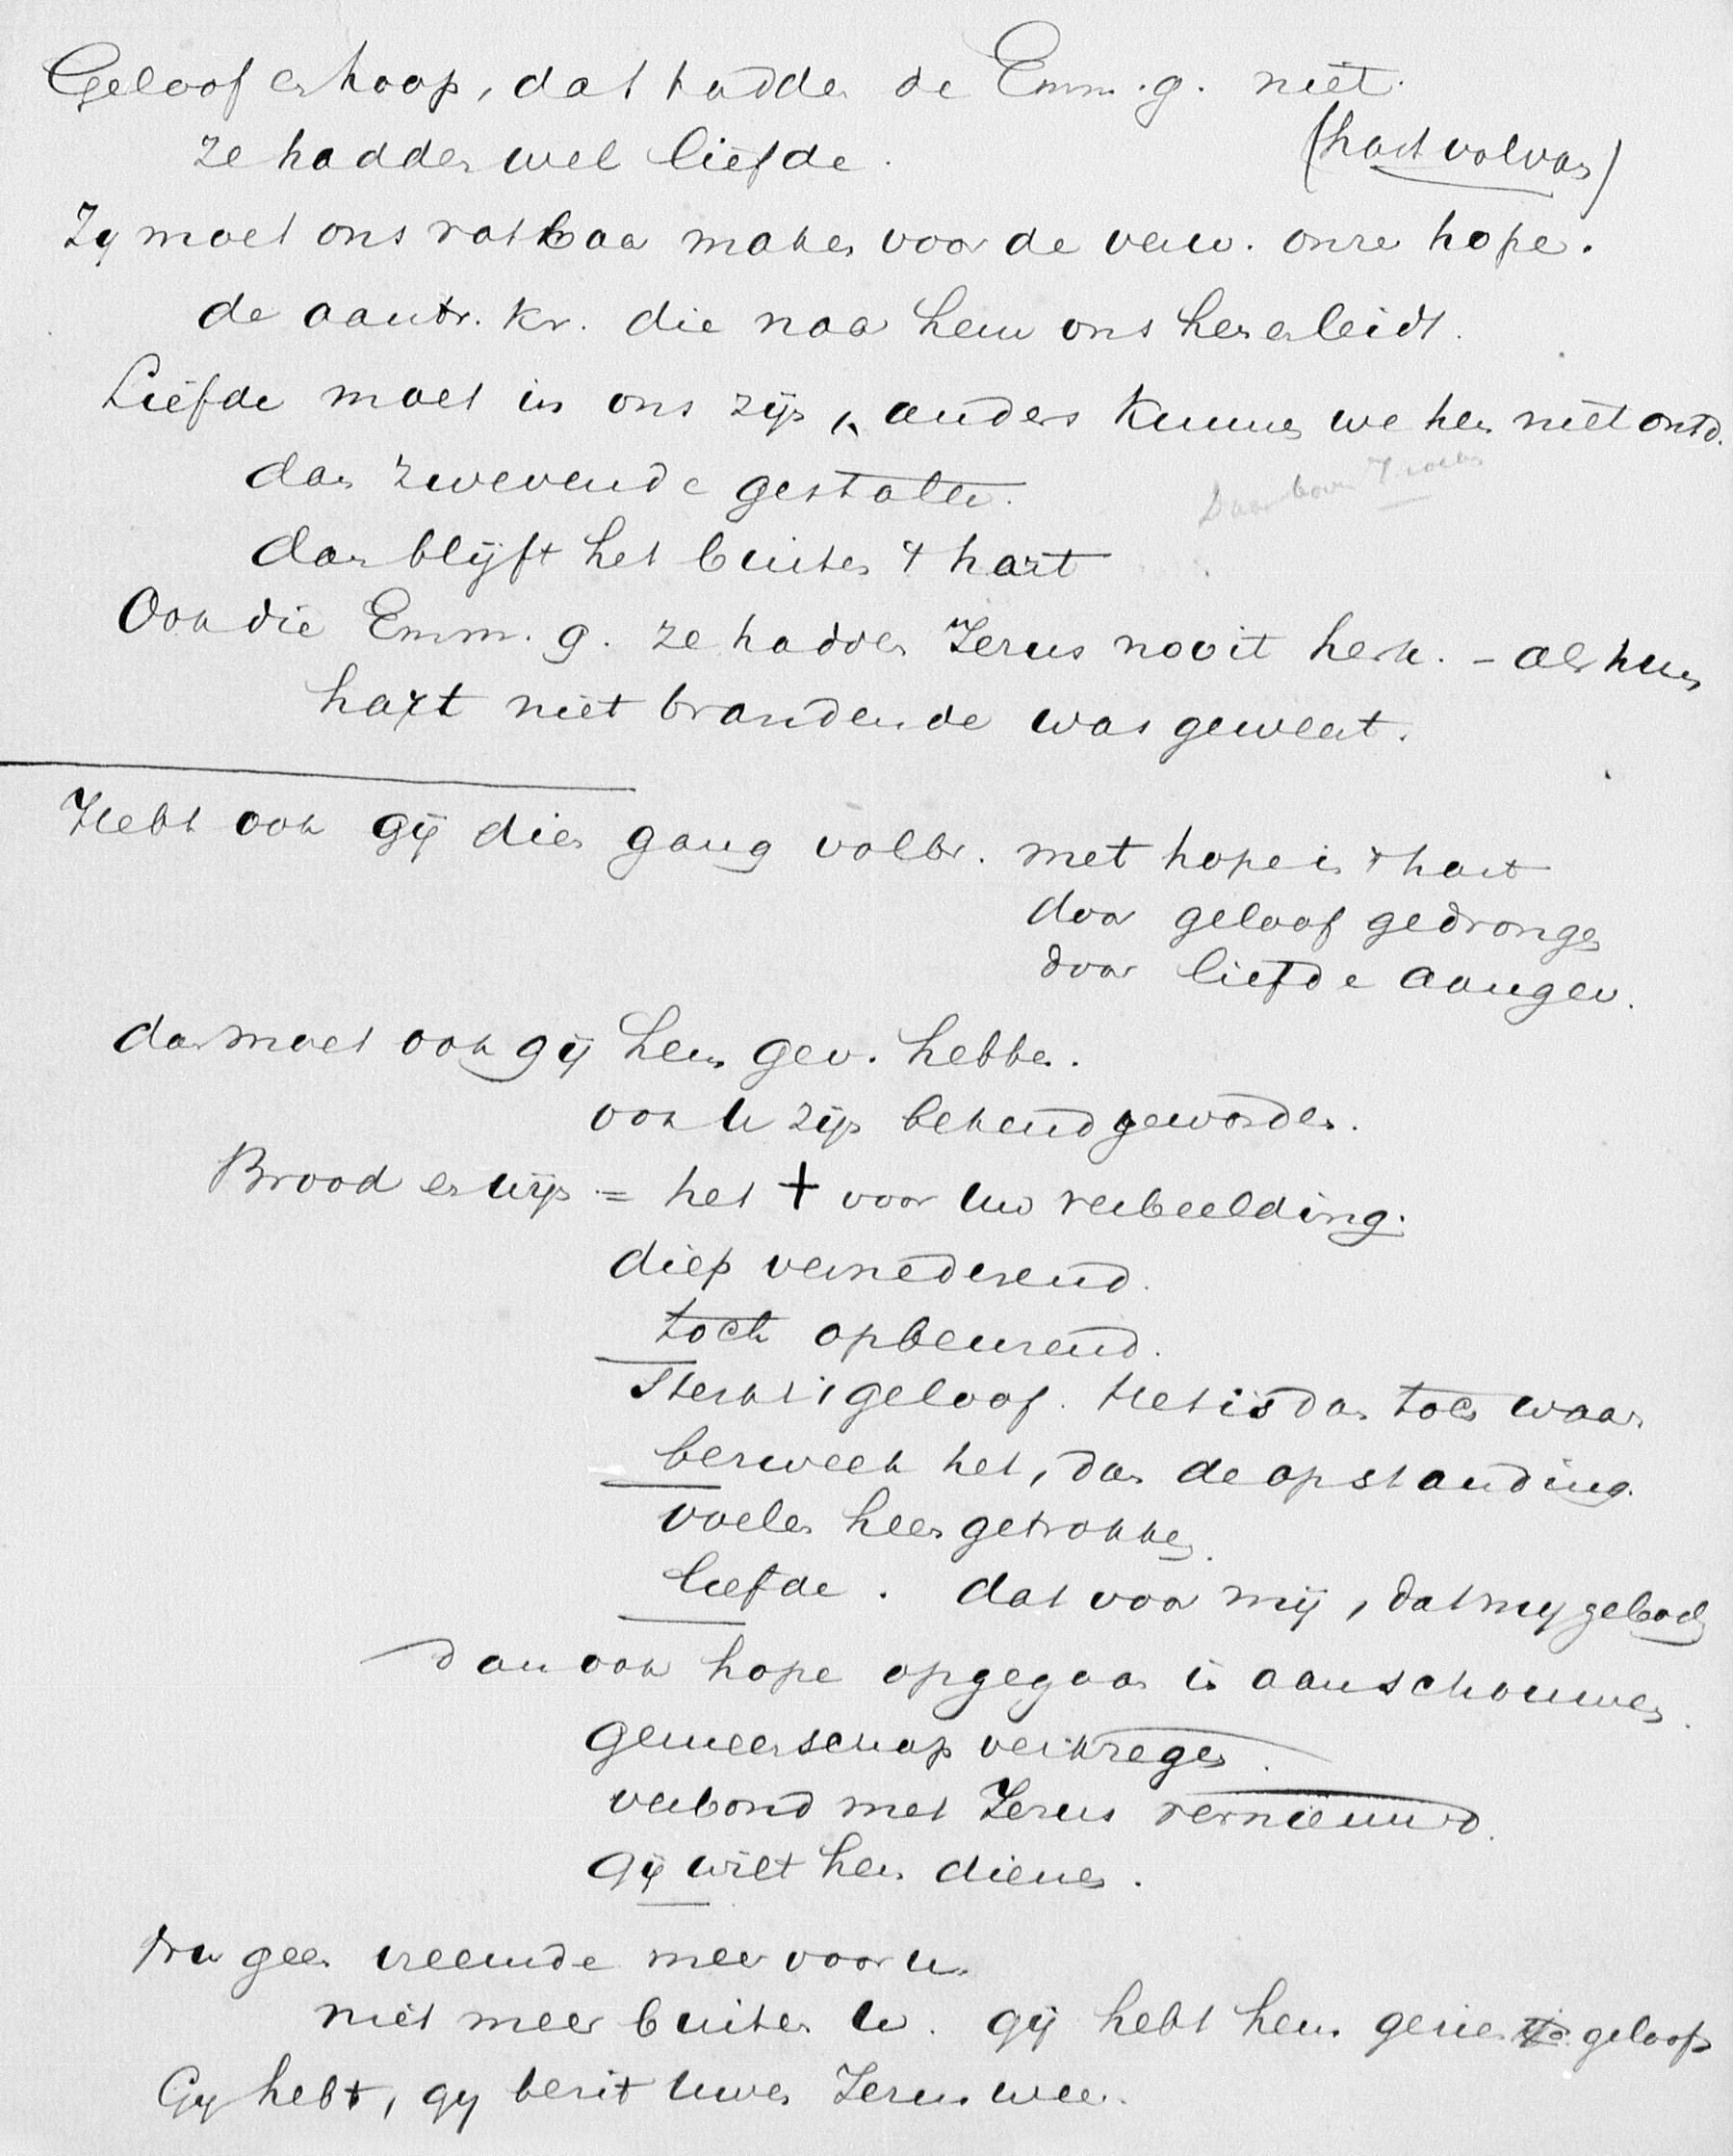 Geloof en hoop, dat hadden de Emm. g. niet.
ze hadden wel liefde. (hart vol van)
Zij moet ons vatbaar maken voor de verw. onzer hope.
de aantr. kr. die naar hem ons henenleidt.
Liefde moet in ons zijn, anders kunnen we hem niet ontd.
dan zwevende gestalten.
dan blijft het buiten 't hart
Ook die Emm. g. ze hadden Jezus nooit herk. - als hun
hart niet brandende was geweest.
Hebt ook gij dien gang volbr. met hope in 't hart
door geloof gedrongen
door liefde aangev.
dan moet ook gij hem gev. hebben.
ook U zijn bekend geworden.
Brood en wijn = het † voor uw verbeelding.
diep vernederend.
toch opbeurend.
Sterkt 't geloof. Het is dan toch waar
bezweek het, dan de opstanding.
voelen heengetrokken.
liefde. dat voor mij, dat mij geboden
dan ook hope opgegaan in aanschouwen.
gemeenschap verkregen.
verbond met Jezus vernieuwd.
gij wilt hem dienen.
Nu geen vreemde meer voor u.
niet meer buiten U. gij hebt hem gezien geloof
Gij hebt, gij bezit uwen Jezus weer.